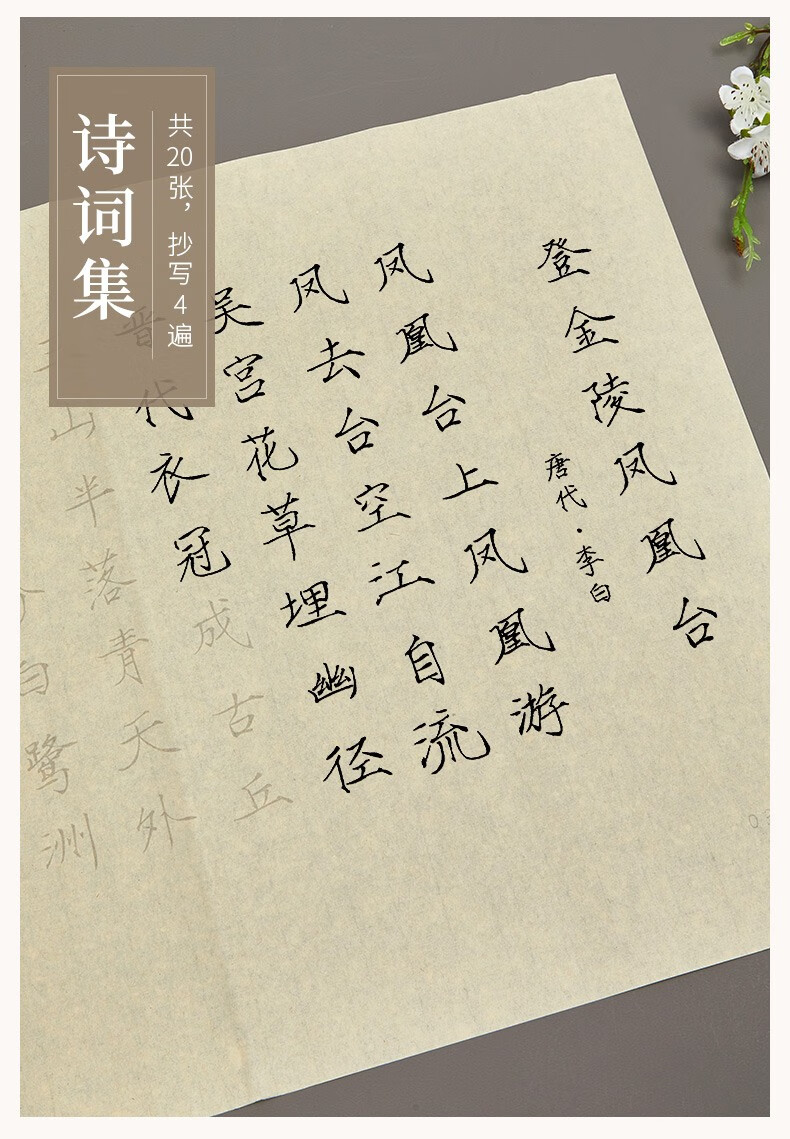 诗词集
共20张，抄写4遍
登金陵凤凰台
唐代·李白
凤凰台上凤凰游
凤去台空江自流
吴宫花草埋幽径
晋代衣冠成古丘
三山半落青天外
白鹭洲